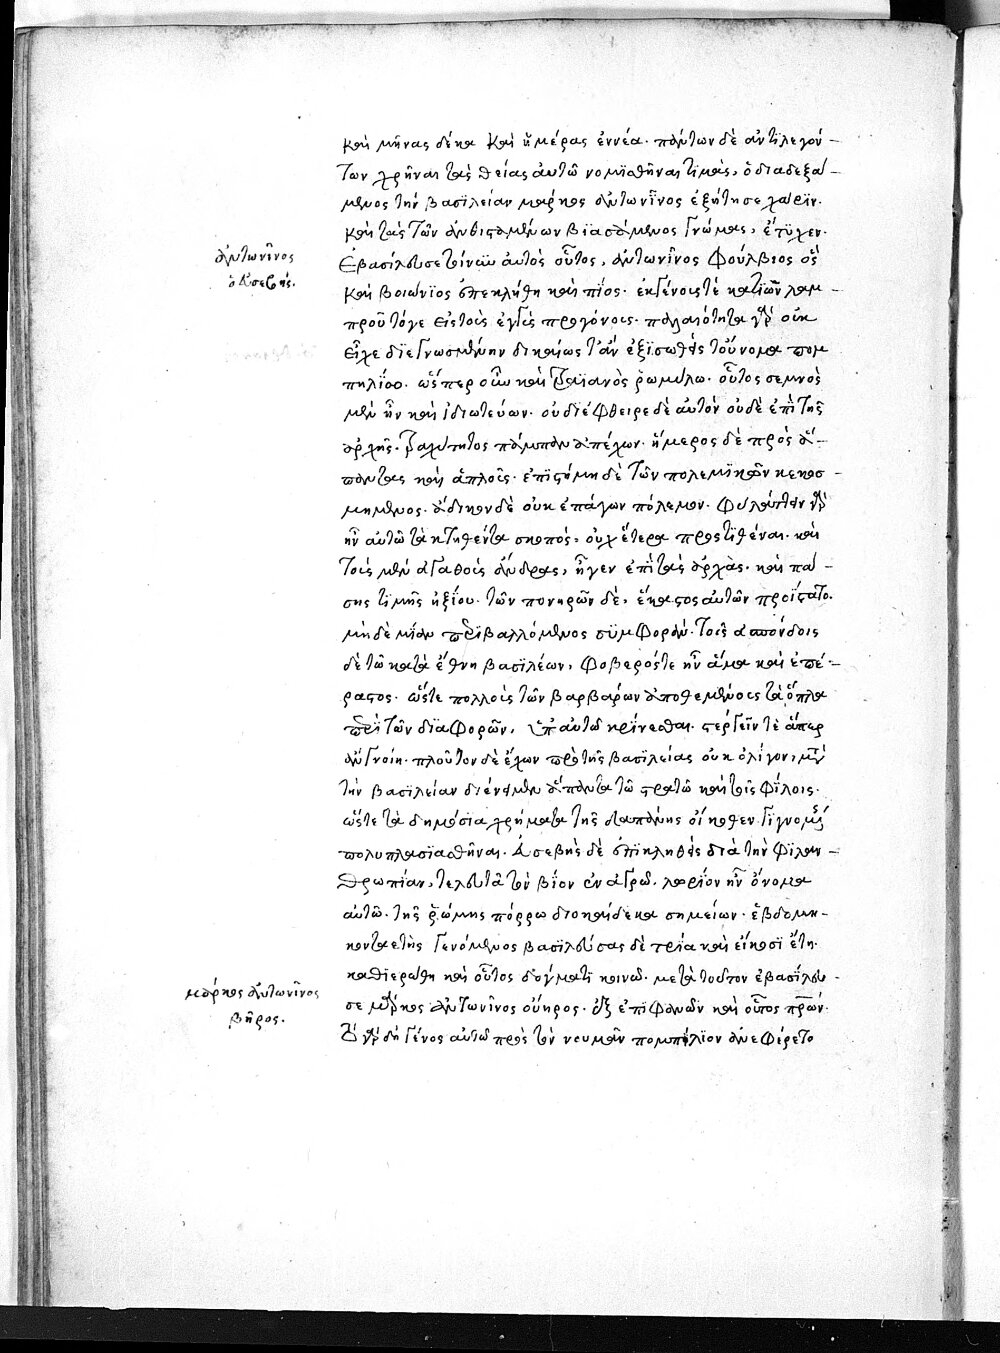 καὶ μῆνας δέκα καὶ ἡμέρας ἐννέα. πάντων δὲ ἀντιλεγόν-
των χρῆναι τὰς θείας αὐτῶ νομισθῆναι τιμάς, ὁ διαδεξά-
μενος τὴν βασιλείαν μάρκος ἀντωνῖνος ἐξήτησε χάριν.
καὶ τὰς τῶν ἀνθισταμένων βιασάμενος γνώμας, ἔτυχεν.
ἀντωνῖνος
ὁ εὐσεβής.
Ἐβασίλευσε τοίνυν αὐτὸς οὗτος, ἀντωνῖνος φούλβιος ὃς
καὶ βοιώνιος ἐπεκλήθη καὶ πῖος. ἐκ γένους τὲ κατιὼν λαμ-
προῦ τόγε εἰς τοὺς ἐγγὺς προγόνους. παλαιότητα γὰρ οὐκ
εἶχε διεγνωσμένην δικαίως τ' ἂν ἐξισωθεὶς τοὔνομα πομ
πηλίωι. ὥσπερ οὖν καὶ τραϊανὸς ῥωμύλω. οὗτος σεμνὸς
μὲν ἦν καὶ ἰδιωτεύων. οὐ διέφθειρε δὲ αὐτὸν οὐδὲ ἐπὶ τῆς
ἀρχῆς. τραχύτητος πάμπαν ἀπέχων. ἥμερος δὲ πρὸς ἅ-
παντας καὶ ἁπλοῦς. ἐπιστήμη δὲ τῶν πολεμικῶν κεκοσ-
μημένος. ἄδικον δὲ οὐκ ἐπάγων πόλεμον. φυλάττειν γὰρ
ἦν αὐτῶ τὰ κτηθέντα σκοπός, οὐχ ἕτερα προστιθέναι. καὶ
τοὺς μὲν ἀγαθοὺς ἄνδρας, ἦγεν ἐπὶ τὰς ἀρχάς. καὶ πά-
σης τιμῆς ἠξίου. τῶν πονηρῶν δὲ, ἕκαστος αὐτῶν προΐστατο.
μὴ δὲ μίαν περιβαλλόμενος συμφοράν. τοῖς ἀσπόνδοις
δὲ τῶ κατὰ ἔθνη βασιλέων, φοβερός τε ἦν ἅμα καὶ ἐπέ-
ραστος. ὥστε πολλοὺς τῶν βαρβάρων ἀποθεμένους τὰ ὅπλα
περὶ τῶν διαφορῶν, ὑπ' αὐτῶ κρίνεσθαι. στέργειν τὲ ἅπερ
ἂν γνοίη. πλοῦτον δὲ ἔχων πρὸ τῆς βασιλείας οὐκ ὀλίγον, μετὰ
τὴν βασιλείαν διένειμεν ἅπαντα τῶ στρατῶ καὶ τοῖς φίλοις.
ὥστε τὰ δημόσια χρήματα τῆς δαπάνης οἴκοθεν γιγνομένης
πολυπλασιασθῆναι. εὐσεβὴς δὲ ἐπικληθεὶς διὰ τὴν φιλαν-
θρωπίαν, τελευτᾶ τὸν βίον ἐν ἀγρῶ. λώριον ἦν ὄνομα
αὐτῶ. τῆς ῥώμης πόρρω διοκαίδεκα σημείων. ἑβδομη-
κονταετὴς γενόμενος βασιλεύσας δὲ τρία καὶ εἴκοσι ἔτη.
καθιερώθη καὶ οὗτος δόγματι κοινῶ. μετὰ τοῦτον ἐβασίλευ-
μάρκος ἀντωνῖνος
βῆρος.
σε μάρκος ἀντωνῖνος οὐῆρος. ἐξ ἐπιφανῶν καὶ οὗτος πατέρων.
Τὸ γὰρ δὴ γένος αὐτῶ πρὸς τὸν νουμᾶν πομπήλιον ἀνεφέρετο